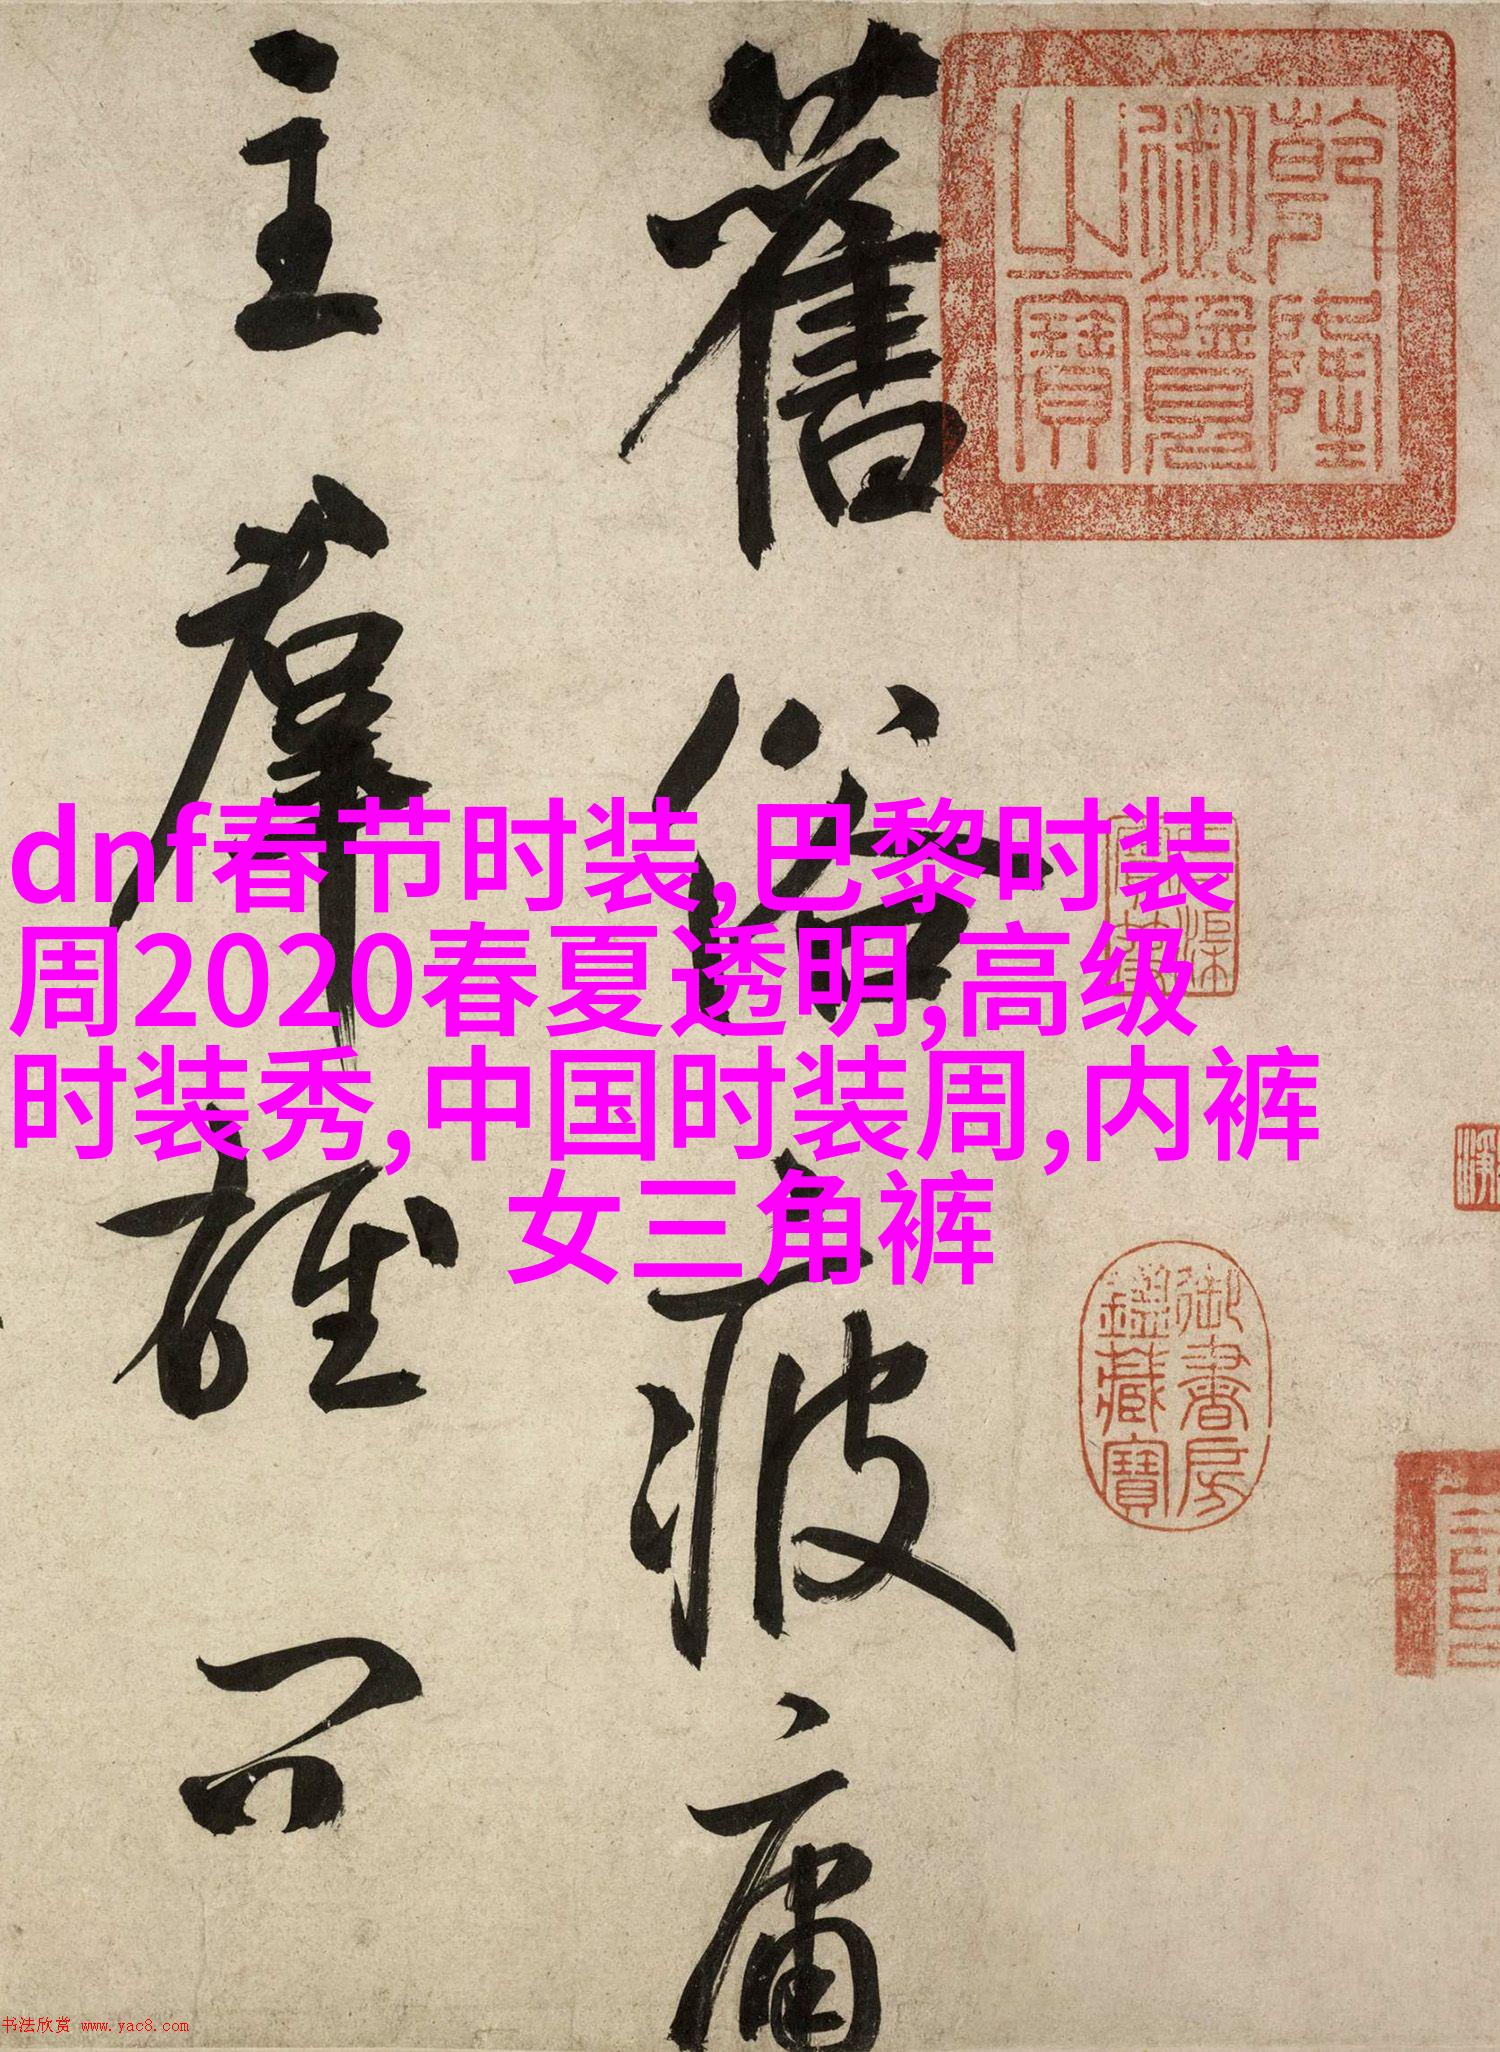 乾隆
御覽
之寶
舊俗疲庸
主羣雄問
dnf春节时装,巴黎时装
周2020春夏透明,高级
时装秀,中国时装周,内裤
女三角裤
御書房
鑑藏寶
书法欣赏 www.yac8.com